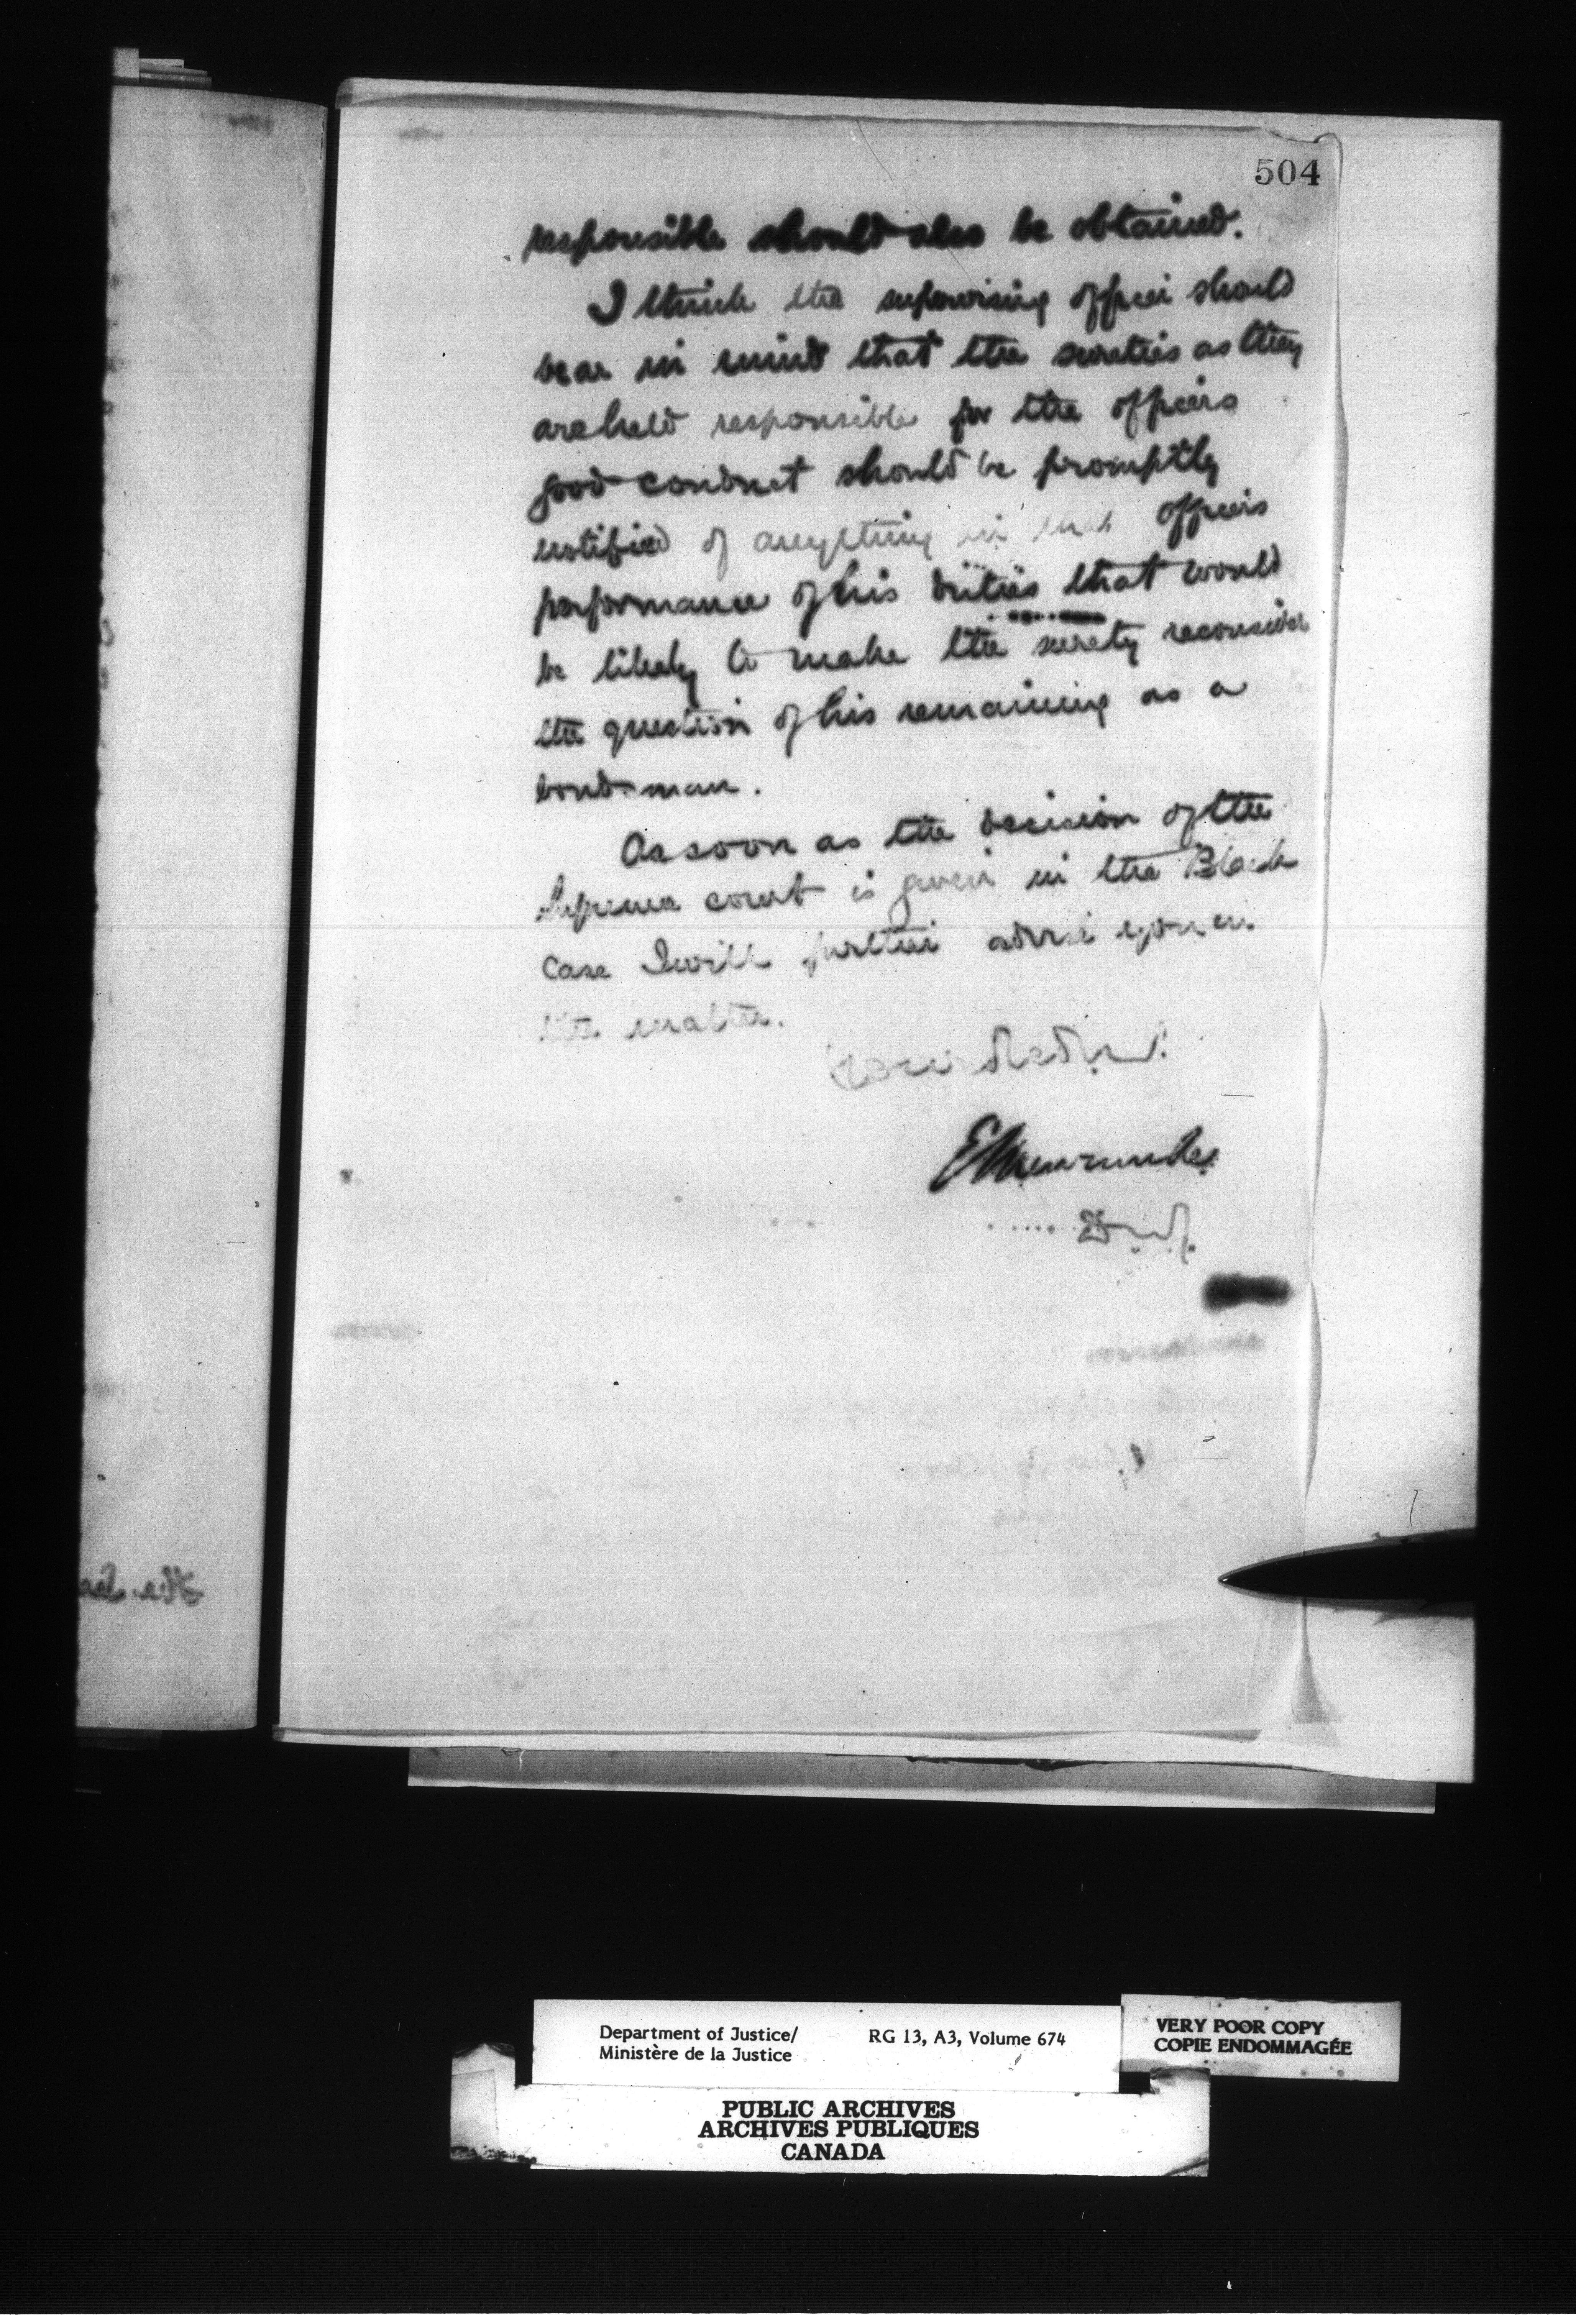 504
responsible should also be obtained.
I think the supervising officer should
bear in mind that the sureties as they
are held responsible for the officers
good conduct should be promptly
notified of anything in that officers
performance of his duties that would
be likely to make the surety reconsider
the question of his remaining as a
bondsman.
As soon as the decision of the
Supreme court is given in the Black
case I will further advise you in
the matter.
E L Newcombe
D.M.J.
Department of Justice/
Ministère de la Justice
RG 13, A3, Volume 674
VERY POOR COPY
COPIE ENDOMMAGÉE
PUBLIC ARCHIVES
ARCHIVES PUBLIQUES
CANADA